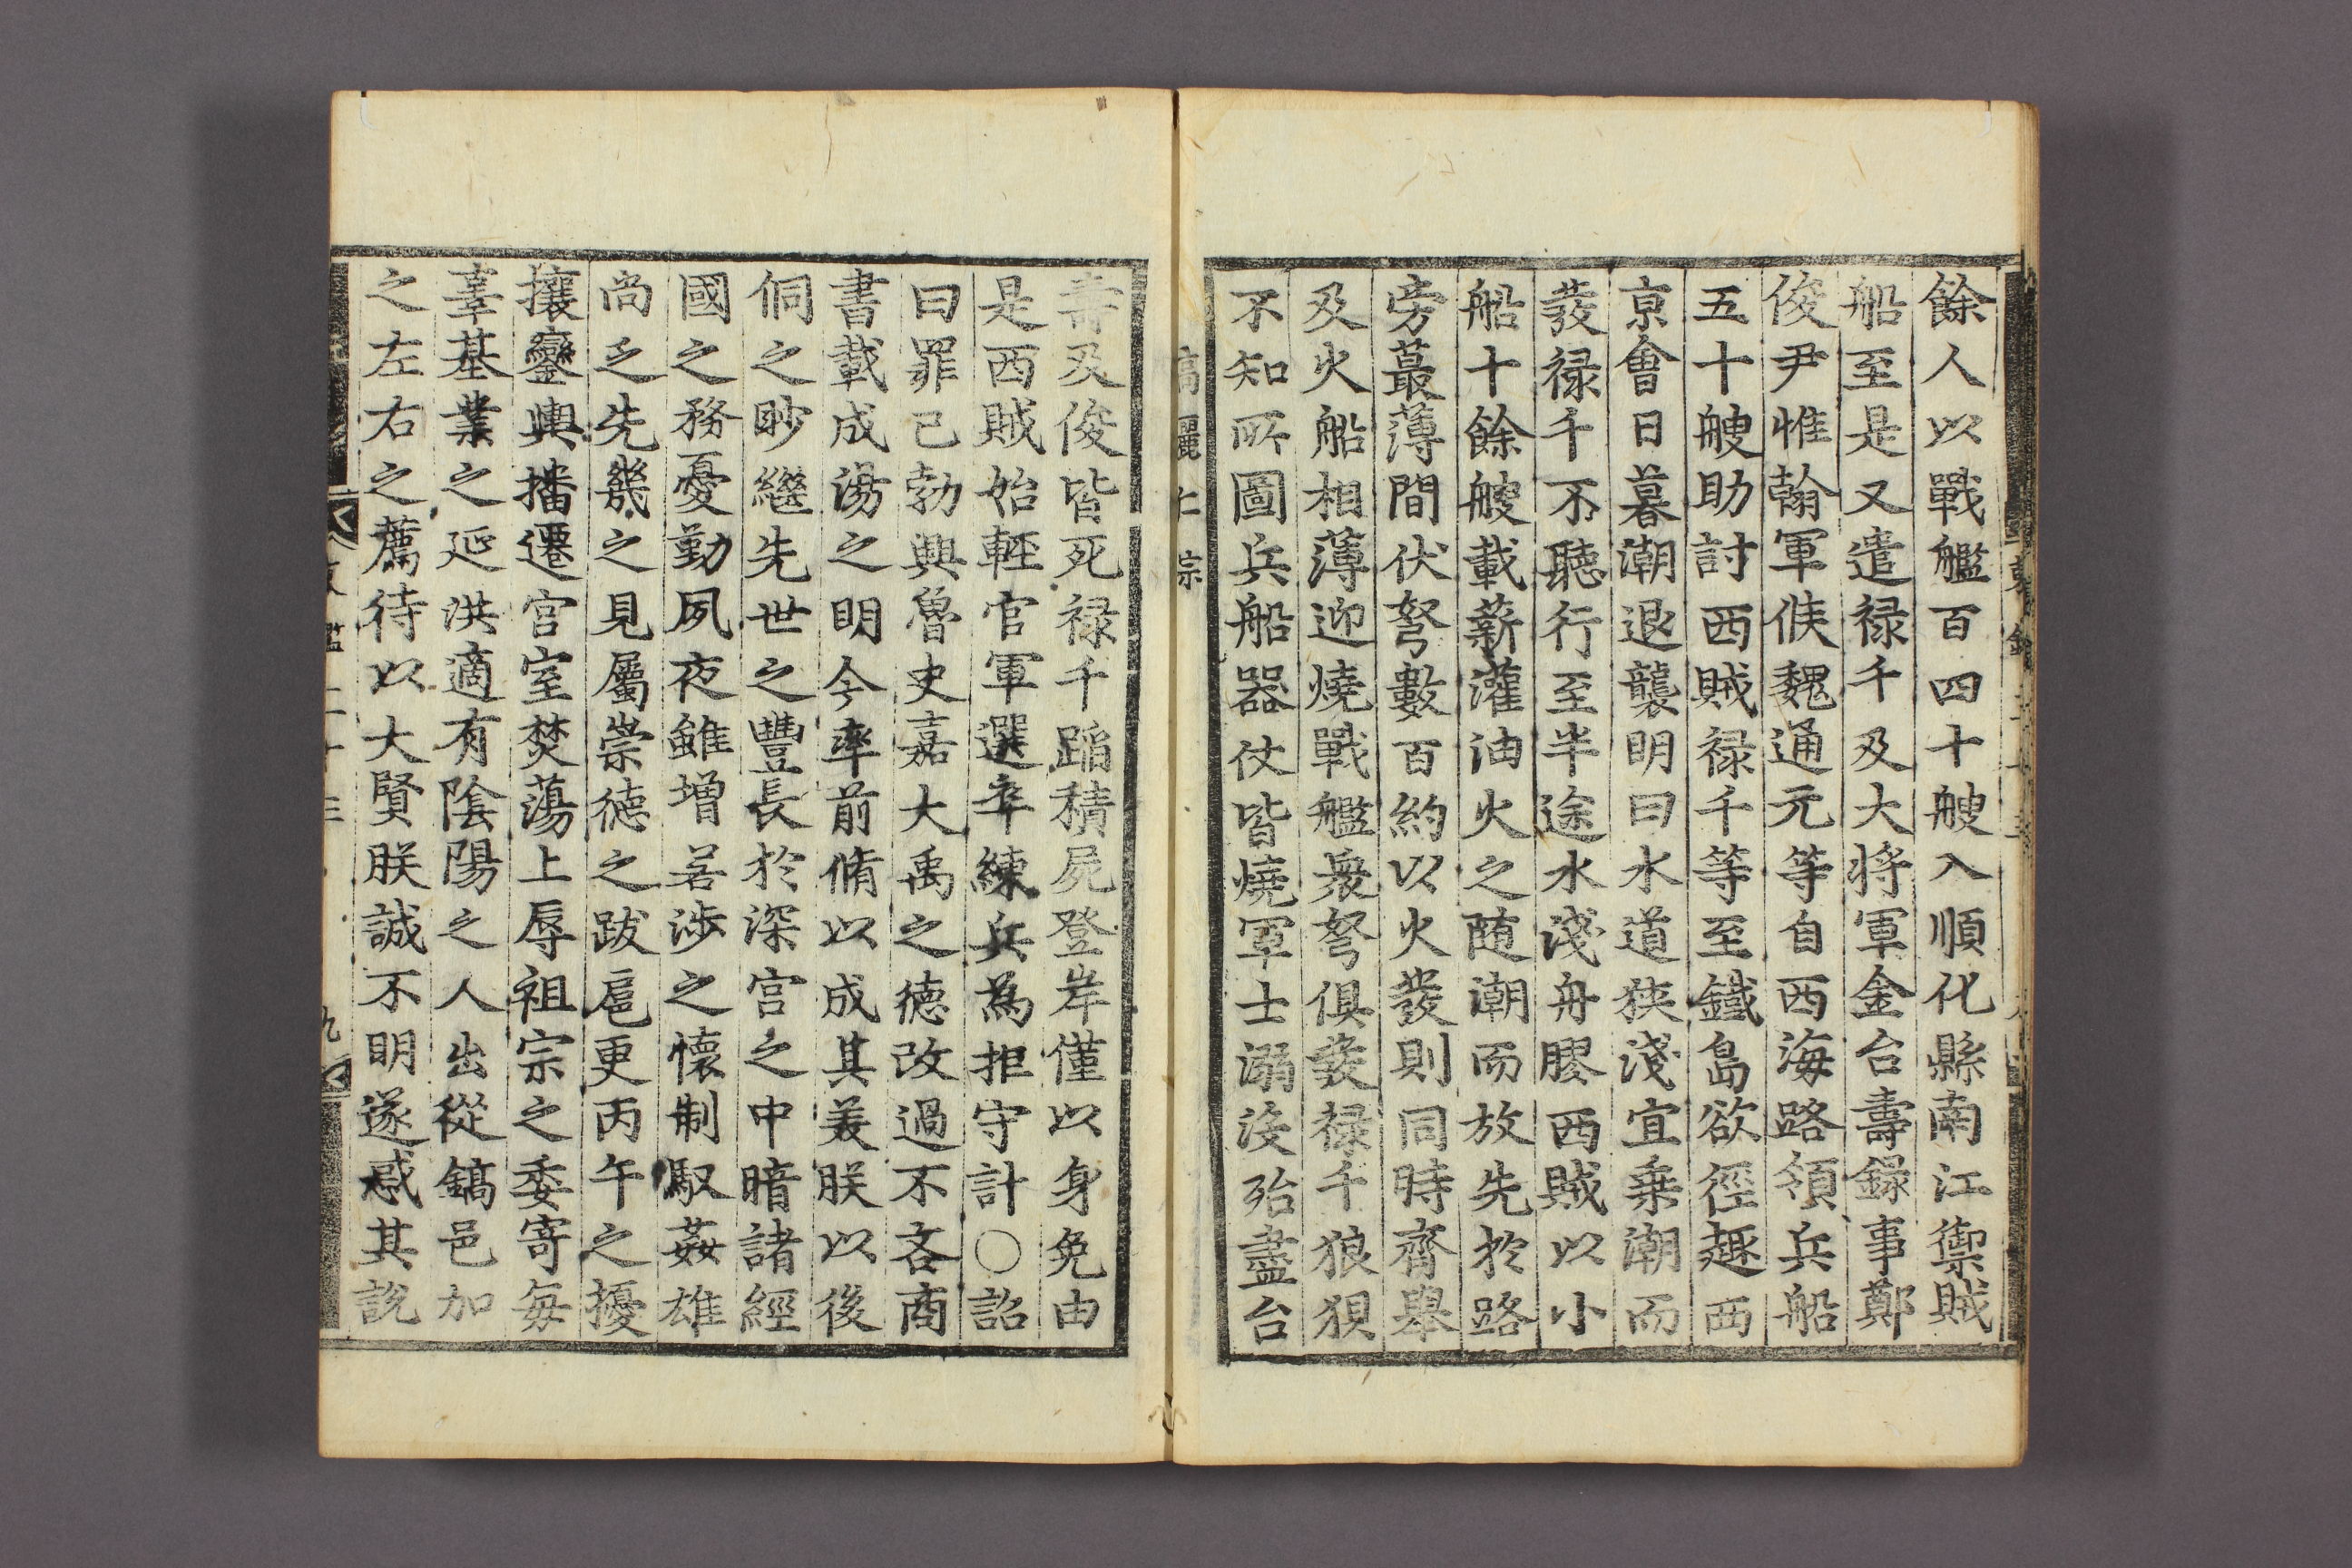 餘人以戰艦百四十艘入順化縣南江禦賊
船至是又遣祿千及大將軍金台壽錄事鄭
俊尹惟翰軍候魏通元等自西海路領兵船
五十艘助討西賊祿千等至鐵島欲徑趣西
京會日暮潮退襲明曰水道狹淺宜乘潮而
發祿千不聽行至半途水淺舟膠西賊以小
船十餘艘載薪灌油火之随潮而放先於路
旁蕞薄間伏弩數百約以火發則同時齊舉
及火船相薄迎燒戰艦衆弩俱發祿千狼狽
不知所圖兵船器仗皆燒軍士溺沒殆盡台
高麗仁宗
壽及俊皆死祿千蹈積屍登岸僅以身免由
是西賊始輕官軍選卒練兵爲拒守計○詔
曰罪己勃興魯史嘉大禹之德改過不吝商
書載成湯之明今率前脩以成其美朕以後
侗之眇繼先世之豐長於深宮之中暗諸經
國之務憂勤夙夜雖增若涉之懷制馭姦雄
尚乏先幾之見屬崇德之跋扈更丙午之擾
攘鑾輿播遷宮室焚蕩上辱祖宗之委寄每
辜基業之延洪適有陰陽之人出從鎬邑加
之左右之薦待以大賢朕誠不明遂惑其說